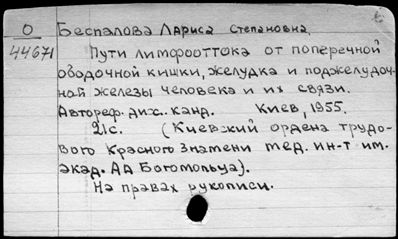 О
44671
Беспалова Лариса Степановна
Пути лимфооттока от поперечной
ободочной кишки, желудка и поджелудоч-
ной железы человека и их связи.
Автореф. дис. канд. Киев, 1955.
21с. (Киевский ордена трудо-
вого Красного Знамени мед. ин-т им.
акад. АА Богомольца).
На правах рукописи.